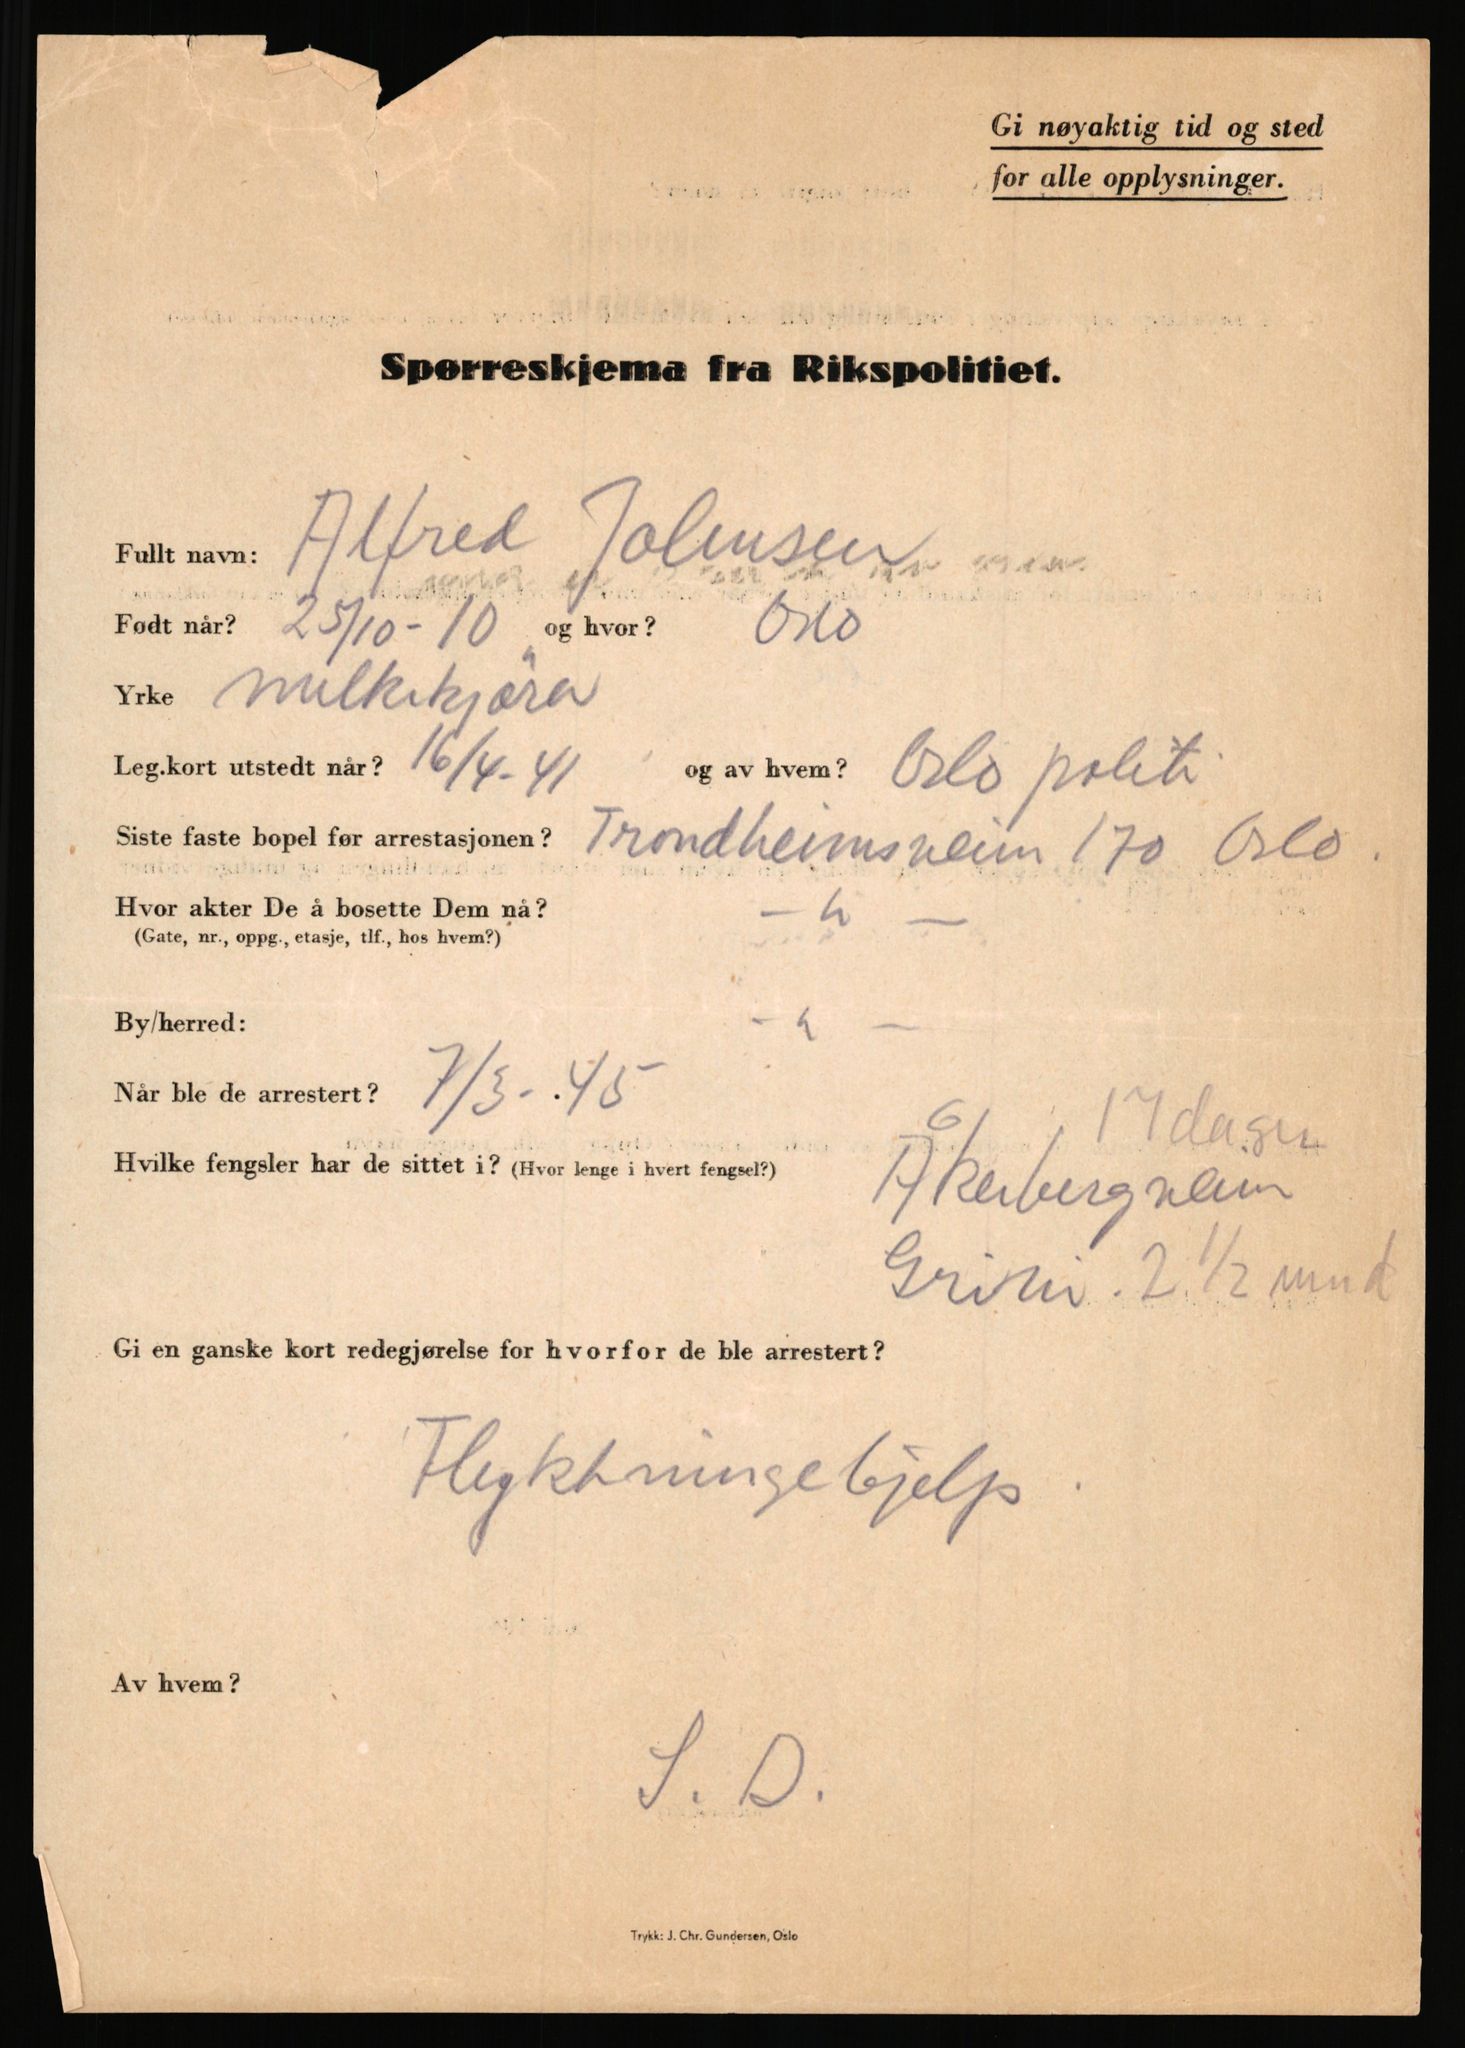 Gi nøyaktig tid og sted
for alle opplysninger.
Spørreskjema fra Rikspolitiet.
Fullt navn: Alfred Johnsen
Født når? 25/10-10 og hvor? Oslo
Yrke melkekjører
Leg.kort utstedt når? 16/4-41 og av hvem? Oslo politi
Siste faste bopel før arrestasjonen? Trondheimsveien 170 Oslo.
Hvor akter De å bosette Dem nå? - " -
(Gate, nr., oppg., etasje, tlf., hos hvem?)
By/herred: - " -
Når ble de arrestert? 7/3-45
17 dager
Hvilke fengsler har de sittet i? (Hvor lenge i hvert fengsel?) Åkerbergveien
Grini. 2 1/2 mnd
Gi en ganske kort redegjørelse for hvorfor de ble arrestert?
Flyktningehjelp.
Av hvem?
S. D.
Trykk: J. Chr. Gundersen, Oslo